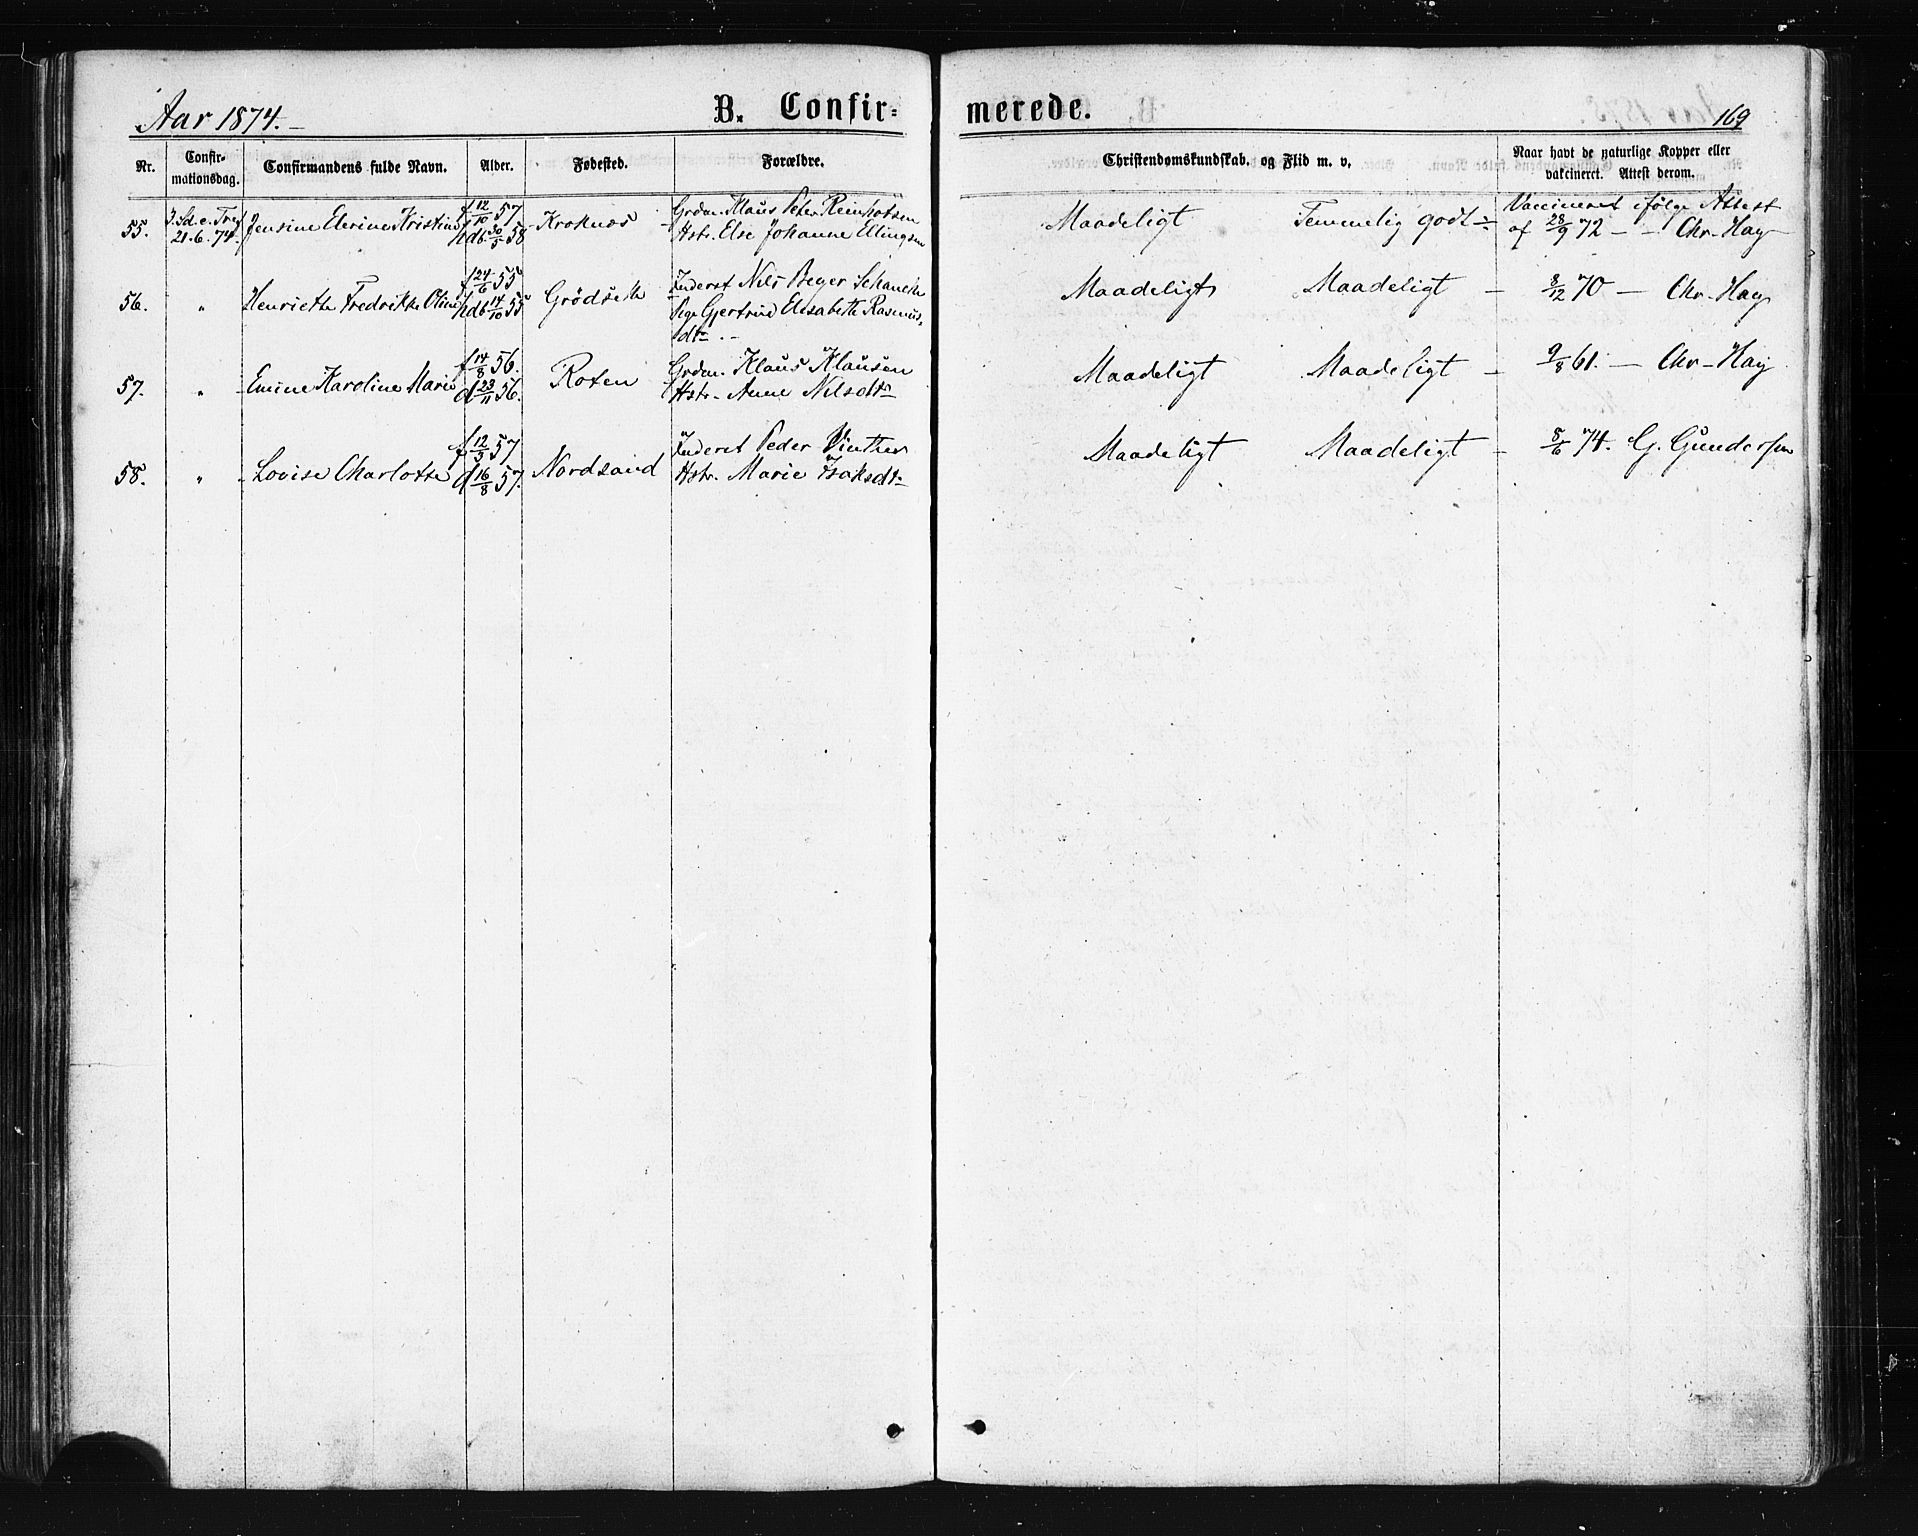 Aar 1874.
B. Confir-
merede.
169
Nr.
Confir-
mationsdag.
Confirmandens fulde Navn.
Alder.
Fødested.
Forældre.
Christendomskundskab. og Flid m. v.
Naar havt de naturlige Kopper eller
vakcineret. Attest derom.
55.
3. Sd. e. Tref.
21.-6. 74.
Jensine Elerine Kristine
f 12/10 57.
hdb 30/5 58
Kroknæs
Grdm. Klaus Peter Reinhotsen
Hstr. Else Johanne Ellingsen
Maadeligt
Temmelig godt
Vaccineret ifølge Attest
af 28/9 72 - - Chr. Hay
56.
"
Henriette Fredrikke Oline
f 24/6 55
hdb 14/10 55
Grødseth
Inderst Nils Beyer Schanche
Pige Gjertrud Elisabeth Rasmus-
dtr
Maadeligt
Maadeligt -
3/12 70 - Chr. Hay
57.
"
Emine Karoline Marie
f 14/8 56.
d 23/11 56.
Roten
Grdm. Klaus Klausen
Hstr. Anne Nilsdtr
Maadeligt
Maadeligt -
9/8 61. - Chr. Hay
58.
"
Lovise Charlotte
f 12/5 57
d 16/8 57.
Nordsand
Inderst Peder Vinther
Hstr. Marie Isaksdtr
Maadeligt
Maadeligt -
5/6 74. G. Gundersen